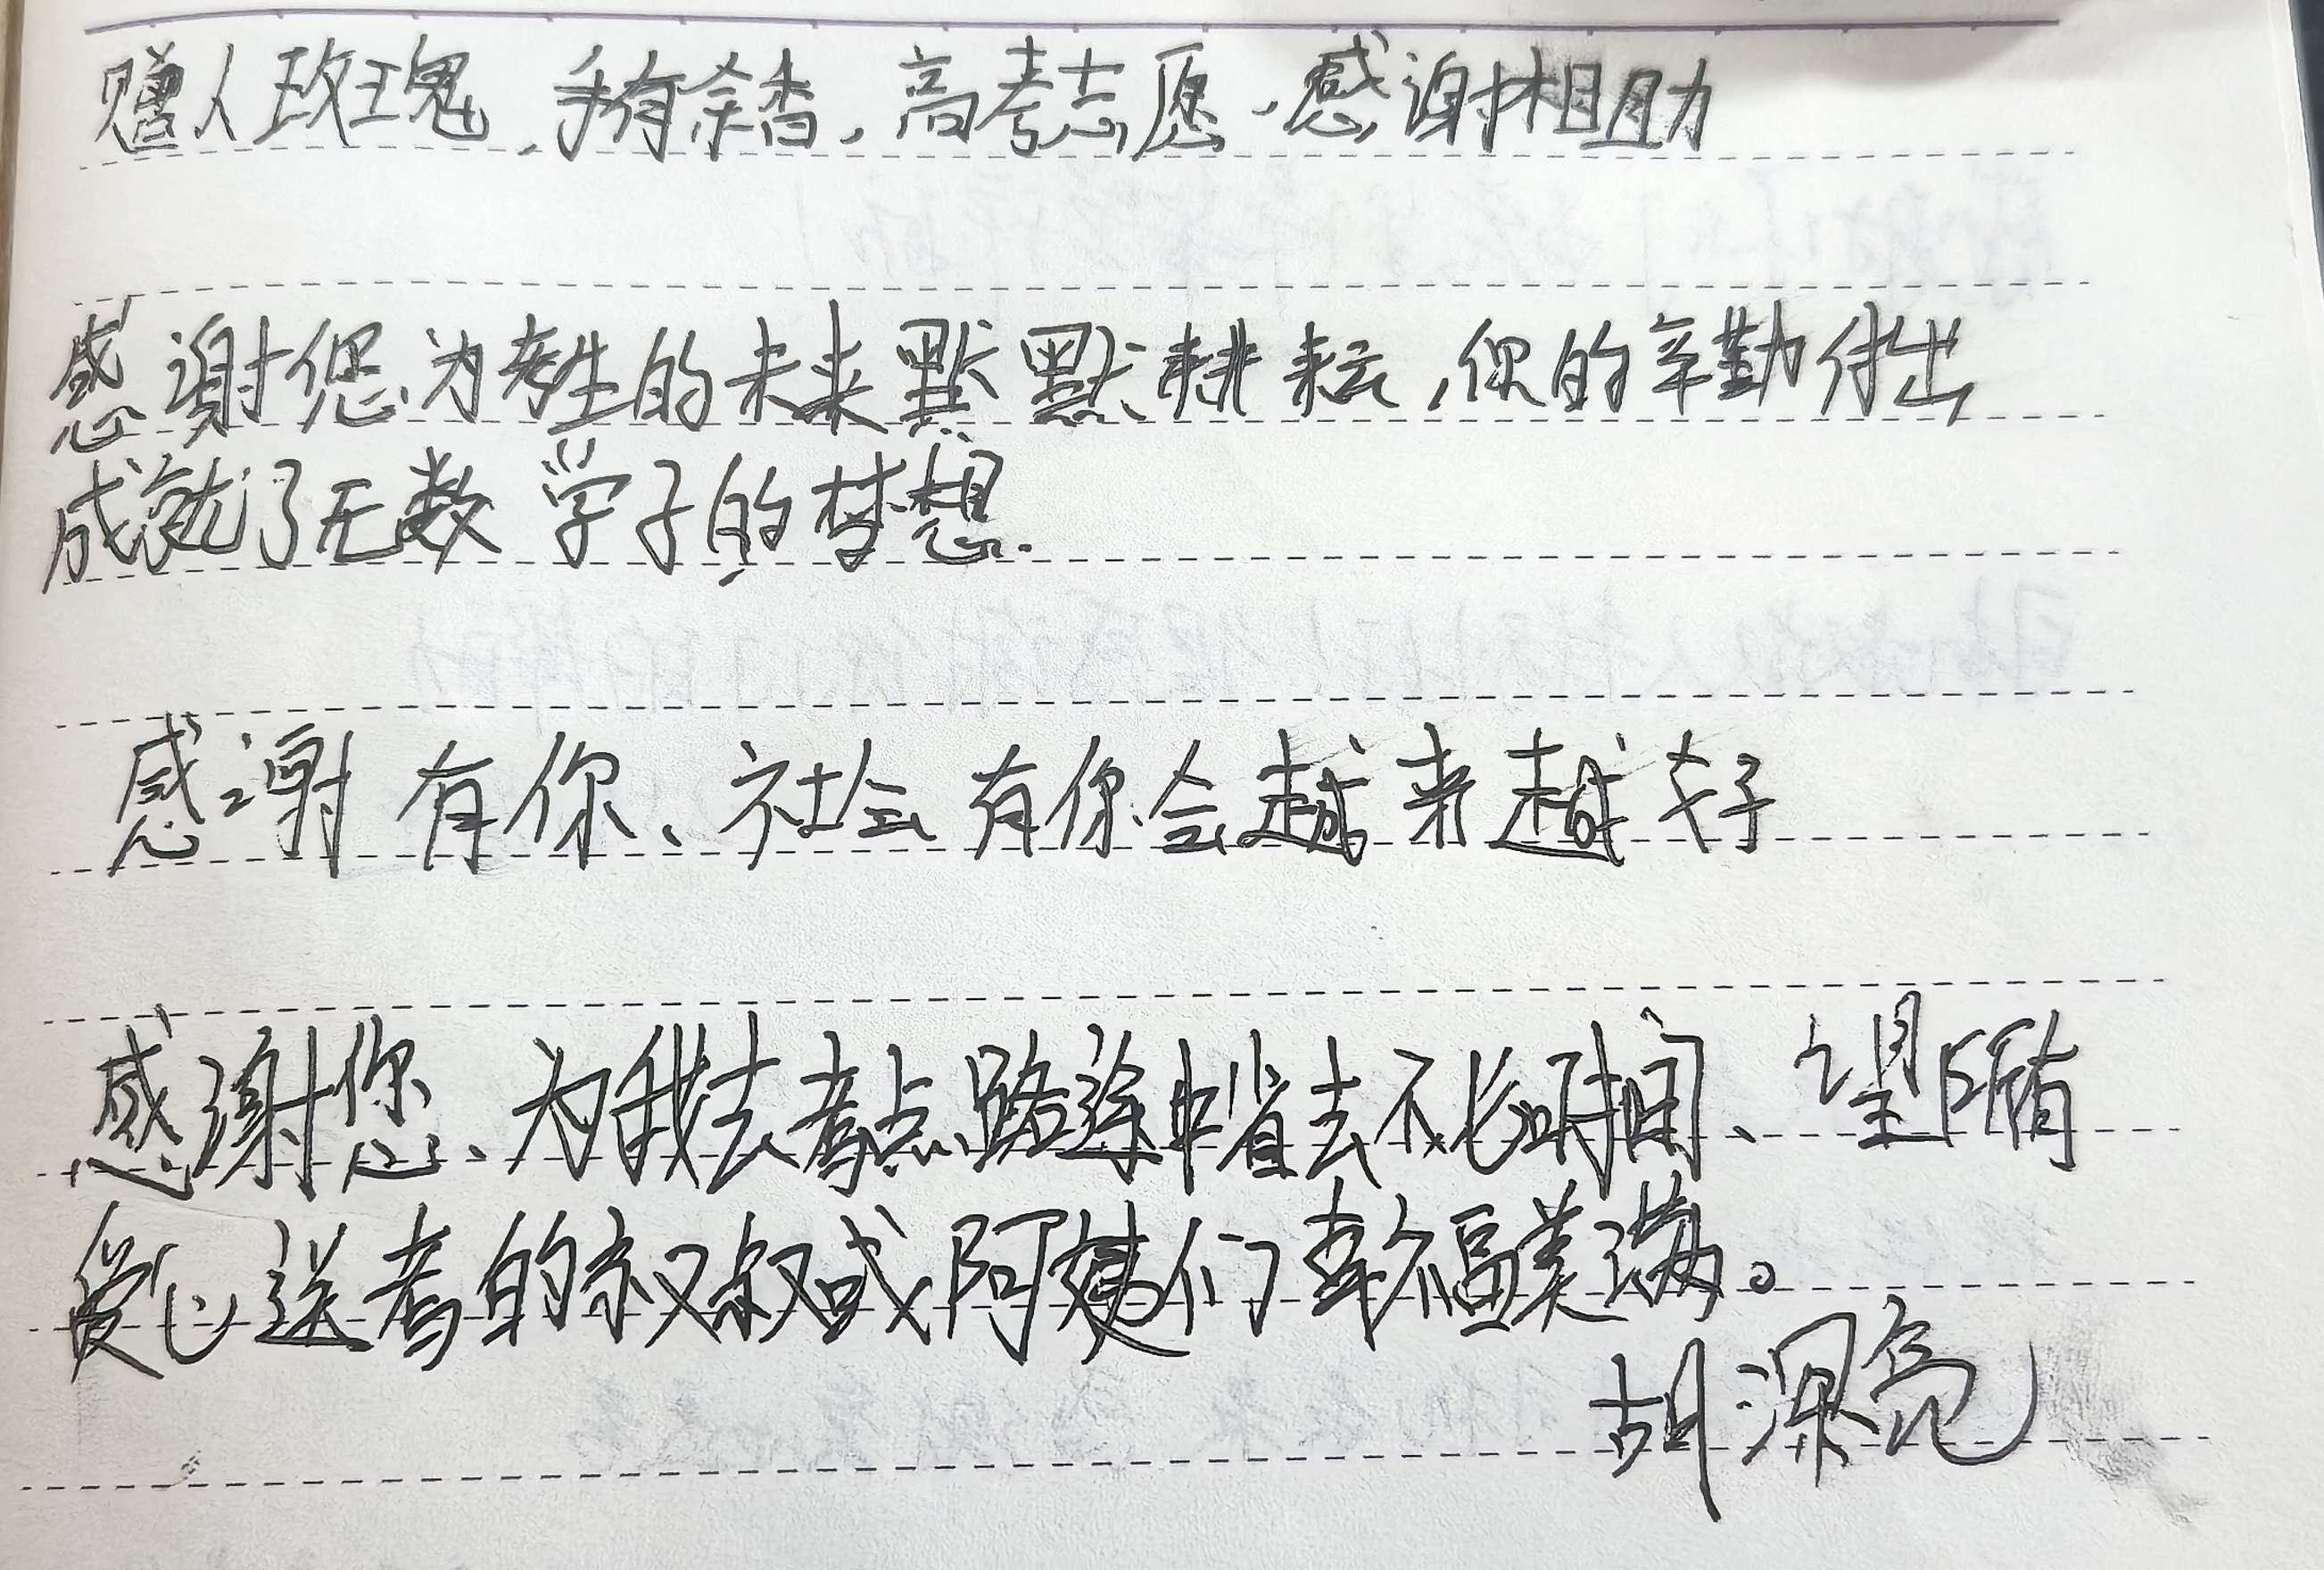 赠人玫瑰,手有余香,高考志愿,感谢相助
感谢您为考生的未来默默耕耘,你的辛勤付出
成就了无数学子的梦想.
感谢有你、社会有你会越来越好
感谢您、为我去考点路途中省去不少时间、望所有
爱心送考的叔叔或阿姨们幸福美满。
胡深亮